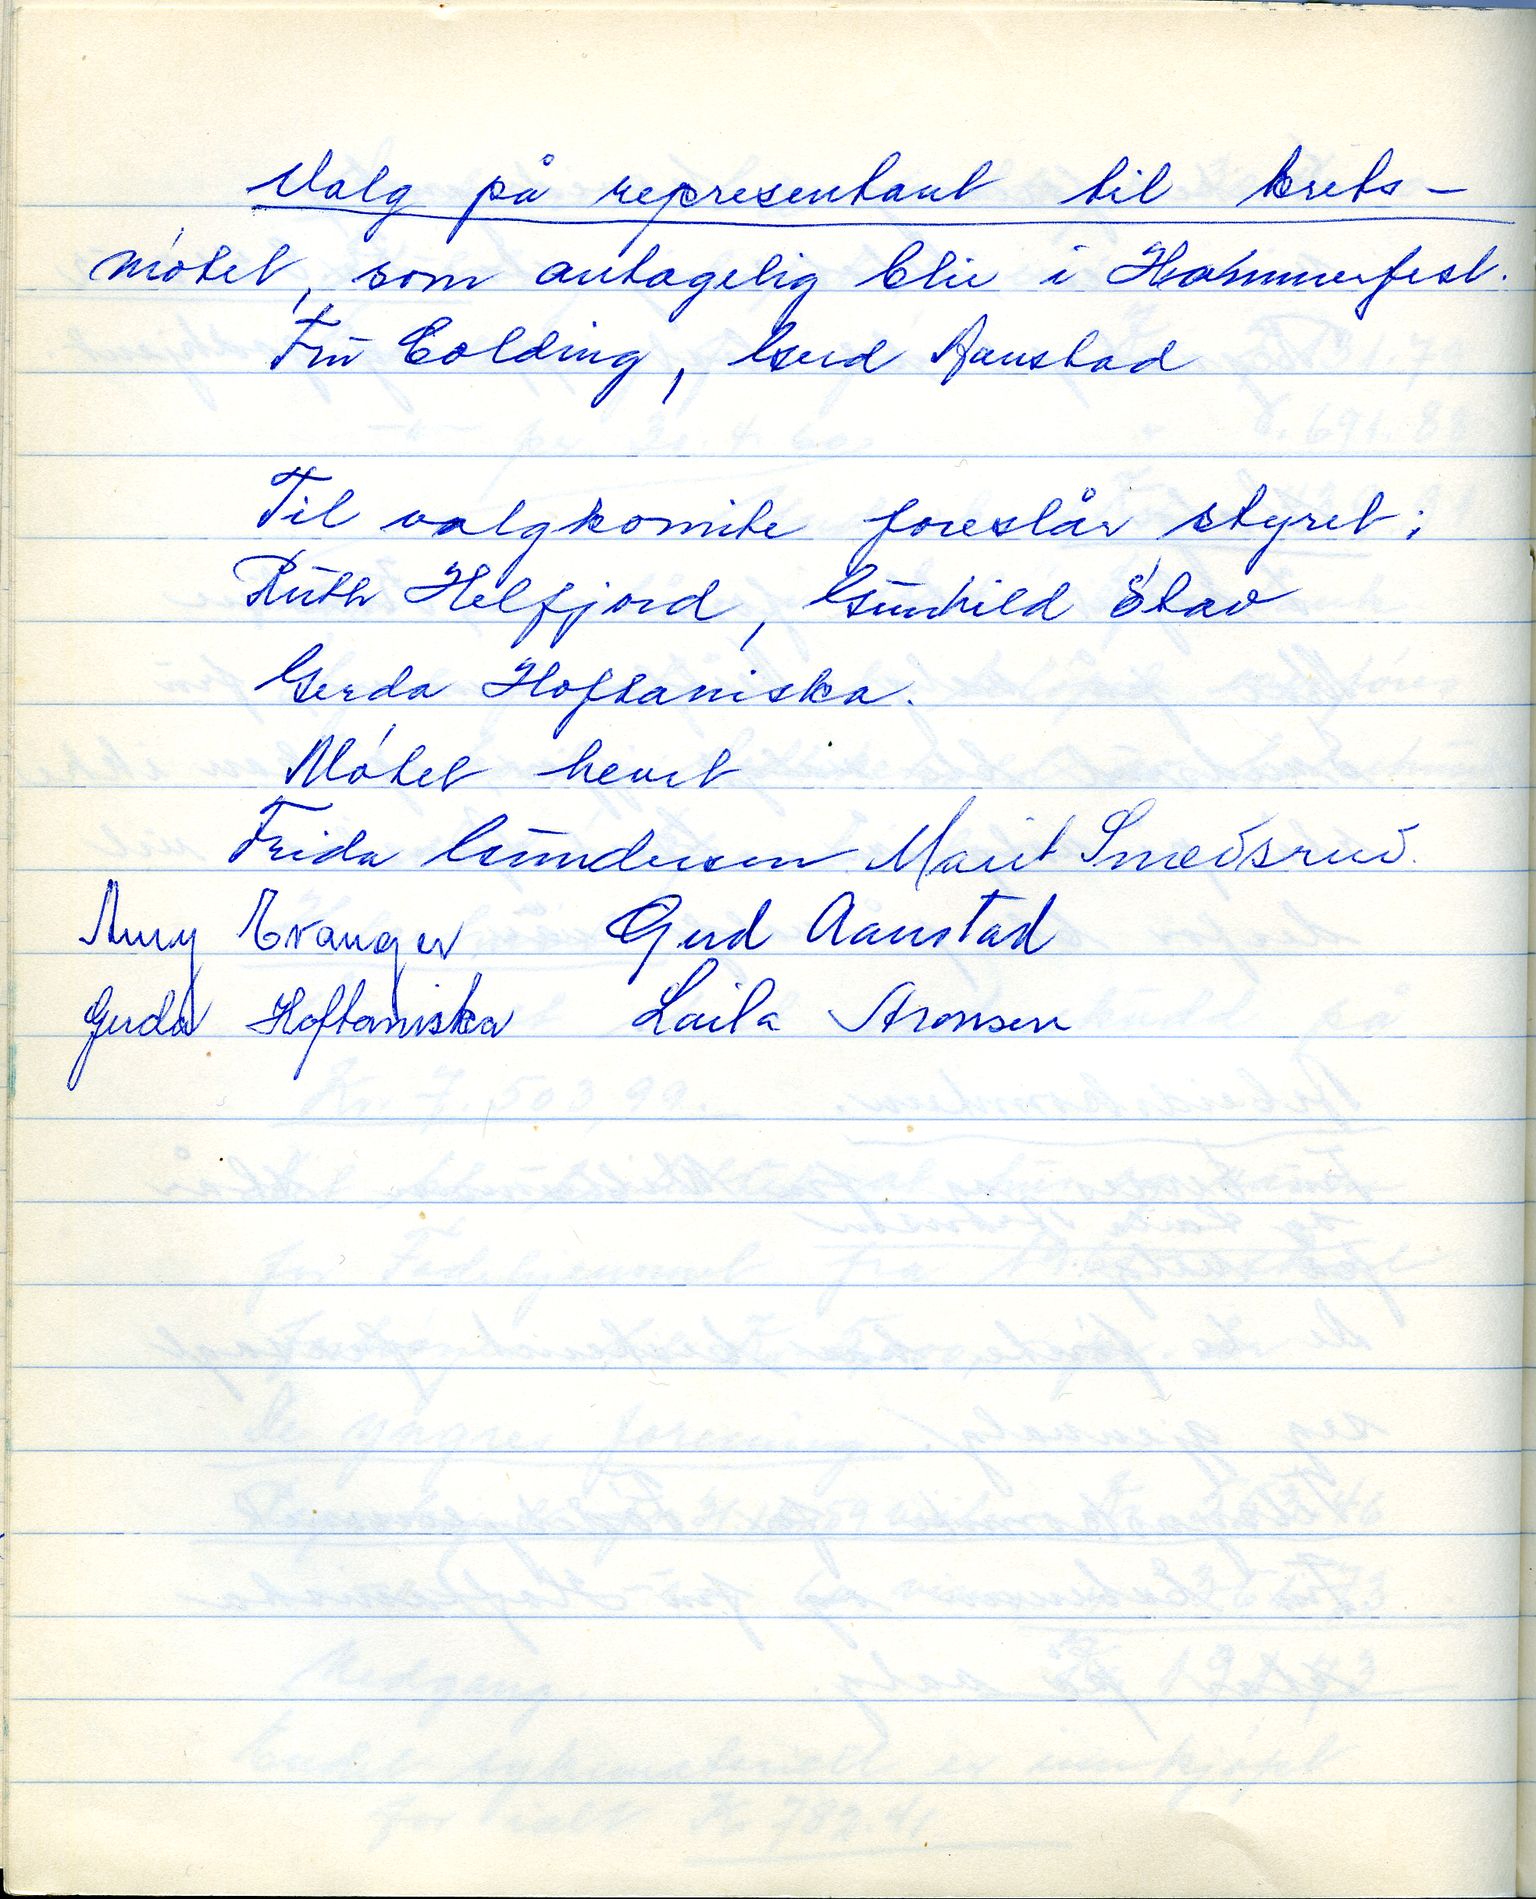 Valg på representant til krets-
møtet, som antagelig blir i Hammerfest.
Frū Colding, Gerd Aanstad
Til valgkomite foreslår styret:
Rūth Helfjord, Gūnhild Stav
Gerda Hoftaniska.
Møtet hevet
Frida Gūndersen Marit Smedsrud.
Amy Evanger Gerd Aanstad
Gerda Hoftaniska Laila Aronsen